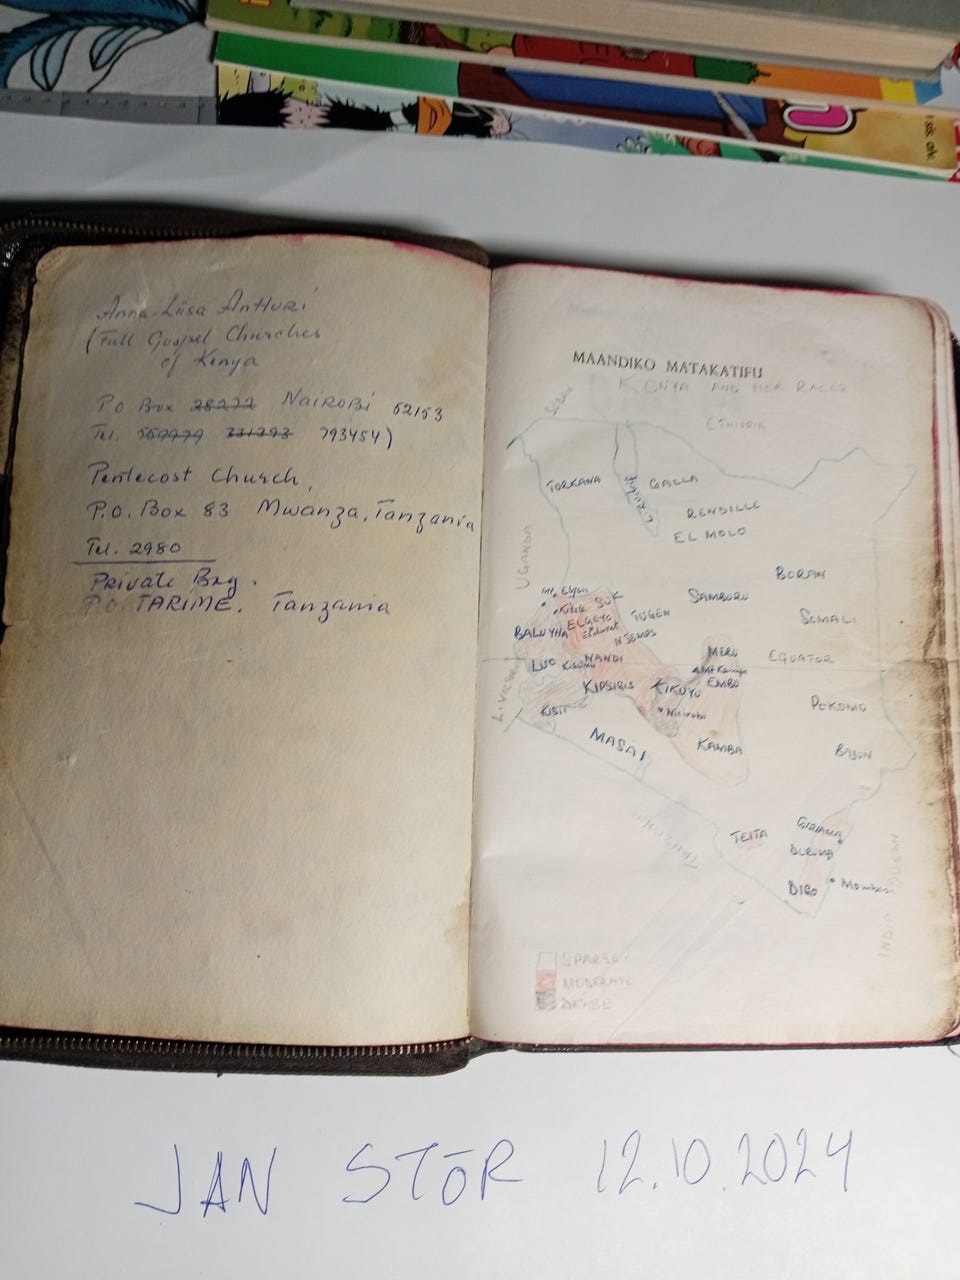 Anna-Liisa Antturi
(Full Gospel Churches
of Kenya
P.O. Box 28222 Nairobi 52153
Tel. 559979 331293 793454)
Pentecost Church,
P.O. Box 83 Mwanza, Tanzania
Tel. 2980
Private Bag.
P.O. TARIME. Tanzania
MAANDIKO MATAKATIFU
KENYA AND HER RACES
SUDAN
ETHIOPIA
TORKANA
GALLA
RENDILLE
EL MOLO
UGANDA
BORAN
Mt. Elgon
SUK
SAMBURU
Kitale
ELGEYO
TUGEN
SOMALI
BALUYHA
Eldoret
NJEMPS
LUO
Kisumu
NANDI
MERU
EQUATOR
Mt Kenya
KIPSIGIS
KIKUYU
EMBU
L. VICTORIA
KISII
Nairobi
POKOMO
MASAI
KAMBA
BAJUN
TEITA
GIRIAMA
DURUMA
DIGO
Mombasa
SPARSE
MODERATE
DENSE
JAN STÖR 12.10.2024